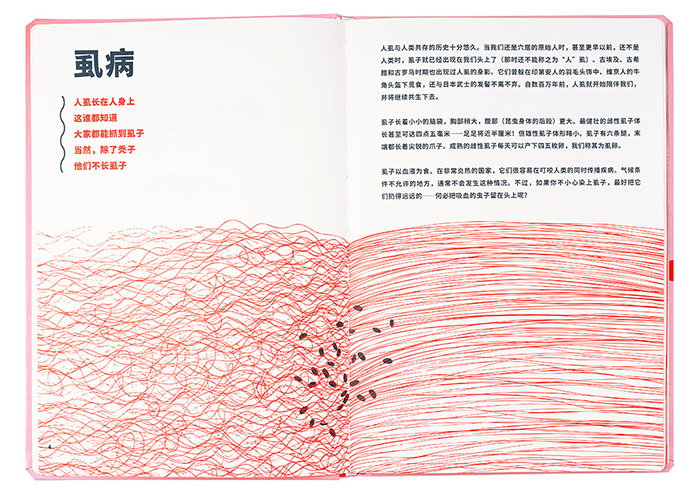 虱病
人虱长在人身上
这谁都知道
大家都能抓到虱子
当然，除了秃子
他们不长虱子
人虱与人类共存的历史十分悠久。当我们还是穴居的原始人时，甚至更早以前，还不是
人类时，虱子就已经出现在我们头上了（那时还不能称之为“人”虱）。古埃及、古希
腊和古罗马时期也出现过人虱的身影。它们曾躲在印第安人的羽毛头饰中、维京人的牛
角头盔下觅食，还与日本武士的发髻不离不弃。自数百万年前，人虱就开始陪伴我们，
并将继续共生下去。
虱子长着小小的脑袋，胸部稍大，腹部（昆虫身体的后段）更大。最健壮的雌性虱子体
长甚至可达四点五毫米——足足将近半厘米！但雄性虱子体形略小。虱子有六条腿，末
端都长着尖锐的爪子。成熟的雌性虱子每天可以产下四五枚卵，我们称其为虱卵。
虱子以血液为食。在非常炎热的国家，它们很容易在叮咬人类的同时传播疾病。气候条
件不允许的地方，通常不会发生这种情况。不过，如果你不小心染上虱子，最好把它
们扔得远远的——何必把吸血的虫子留在头上呢？
4